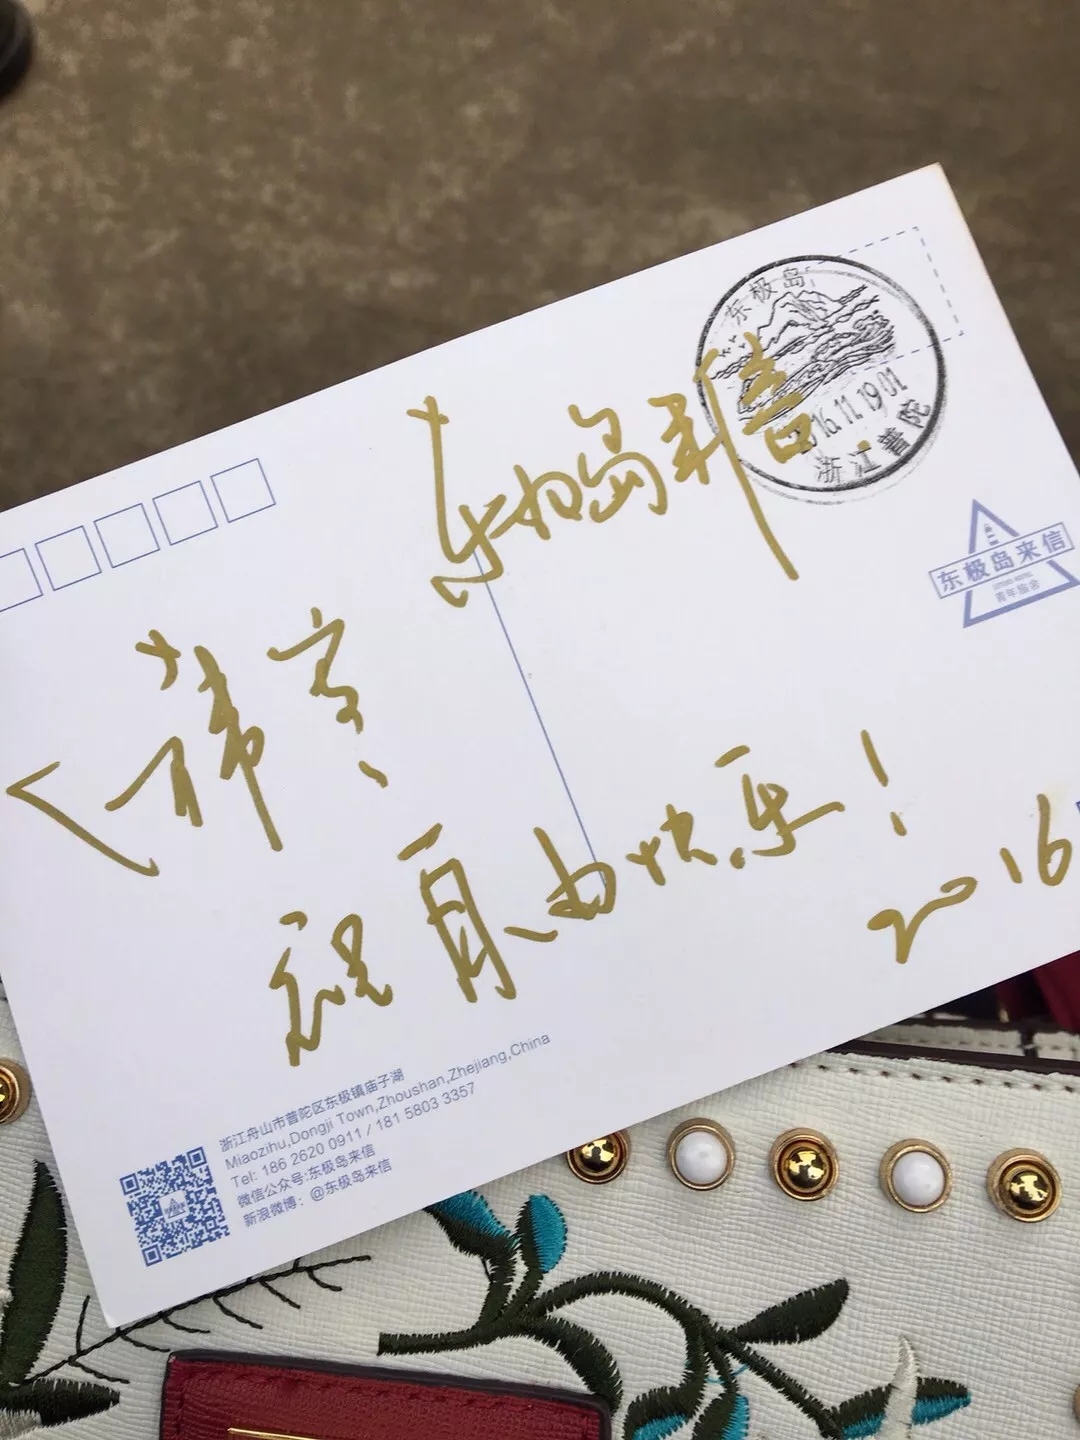 东极岛
2016.11.19.01
浙江普陀
东极岛来信
青年旅舍
东极岛来信
祝自由快乐!
2016
浙江舟山市普陀区东极镇庙子湖
Miaozihu,Dongji Town,Zhoushan,Zhejiang,China
Tel: 186 2620 0911 / 181 5803 3357
微信公众号:东极岛来信
新浪微博：@东极岛来信